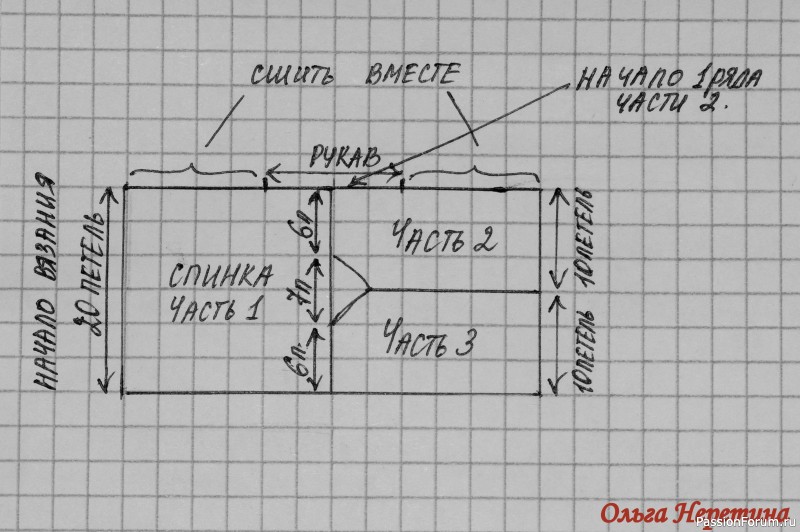 СШИТЬ ВМЕСТЕ
НАЧАЛО 1 РЯДА
ЧАСТИ 2.
РУКАВ
НАЧАЛО ВЯЗАНИЯ
20 ПЕТЕЛЬ
СПИНКА
ЧАСТЬ 1
6П
7П
6П.
ЧАСТЬ 2
ЧАСТЬ 3
10ПЕТЕЛЬ
10ПЕТЕЛЬ
Ольга Неретина
PassionForum.ru